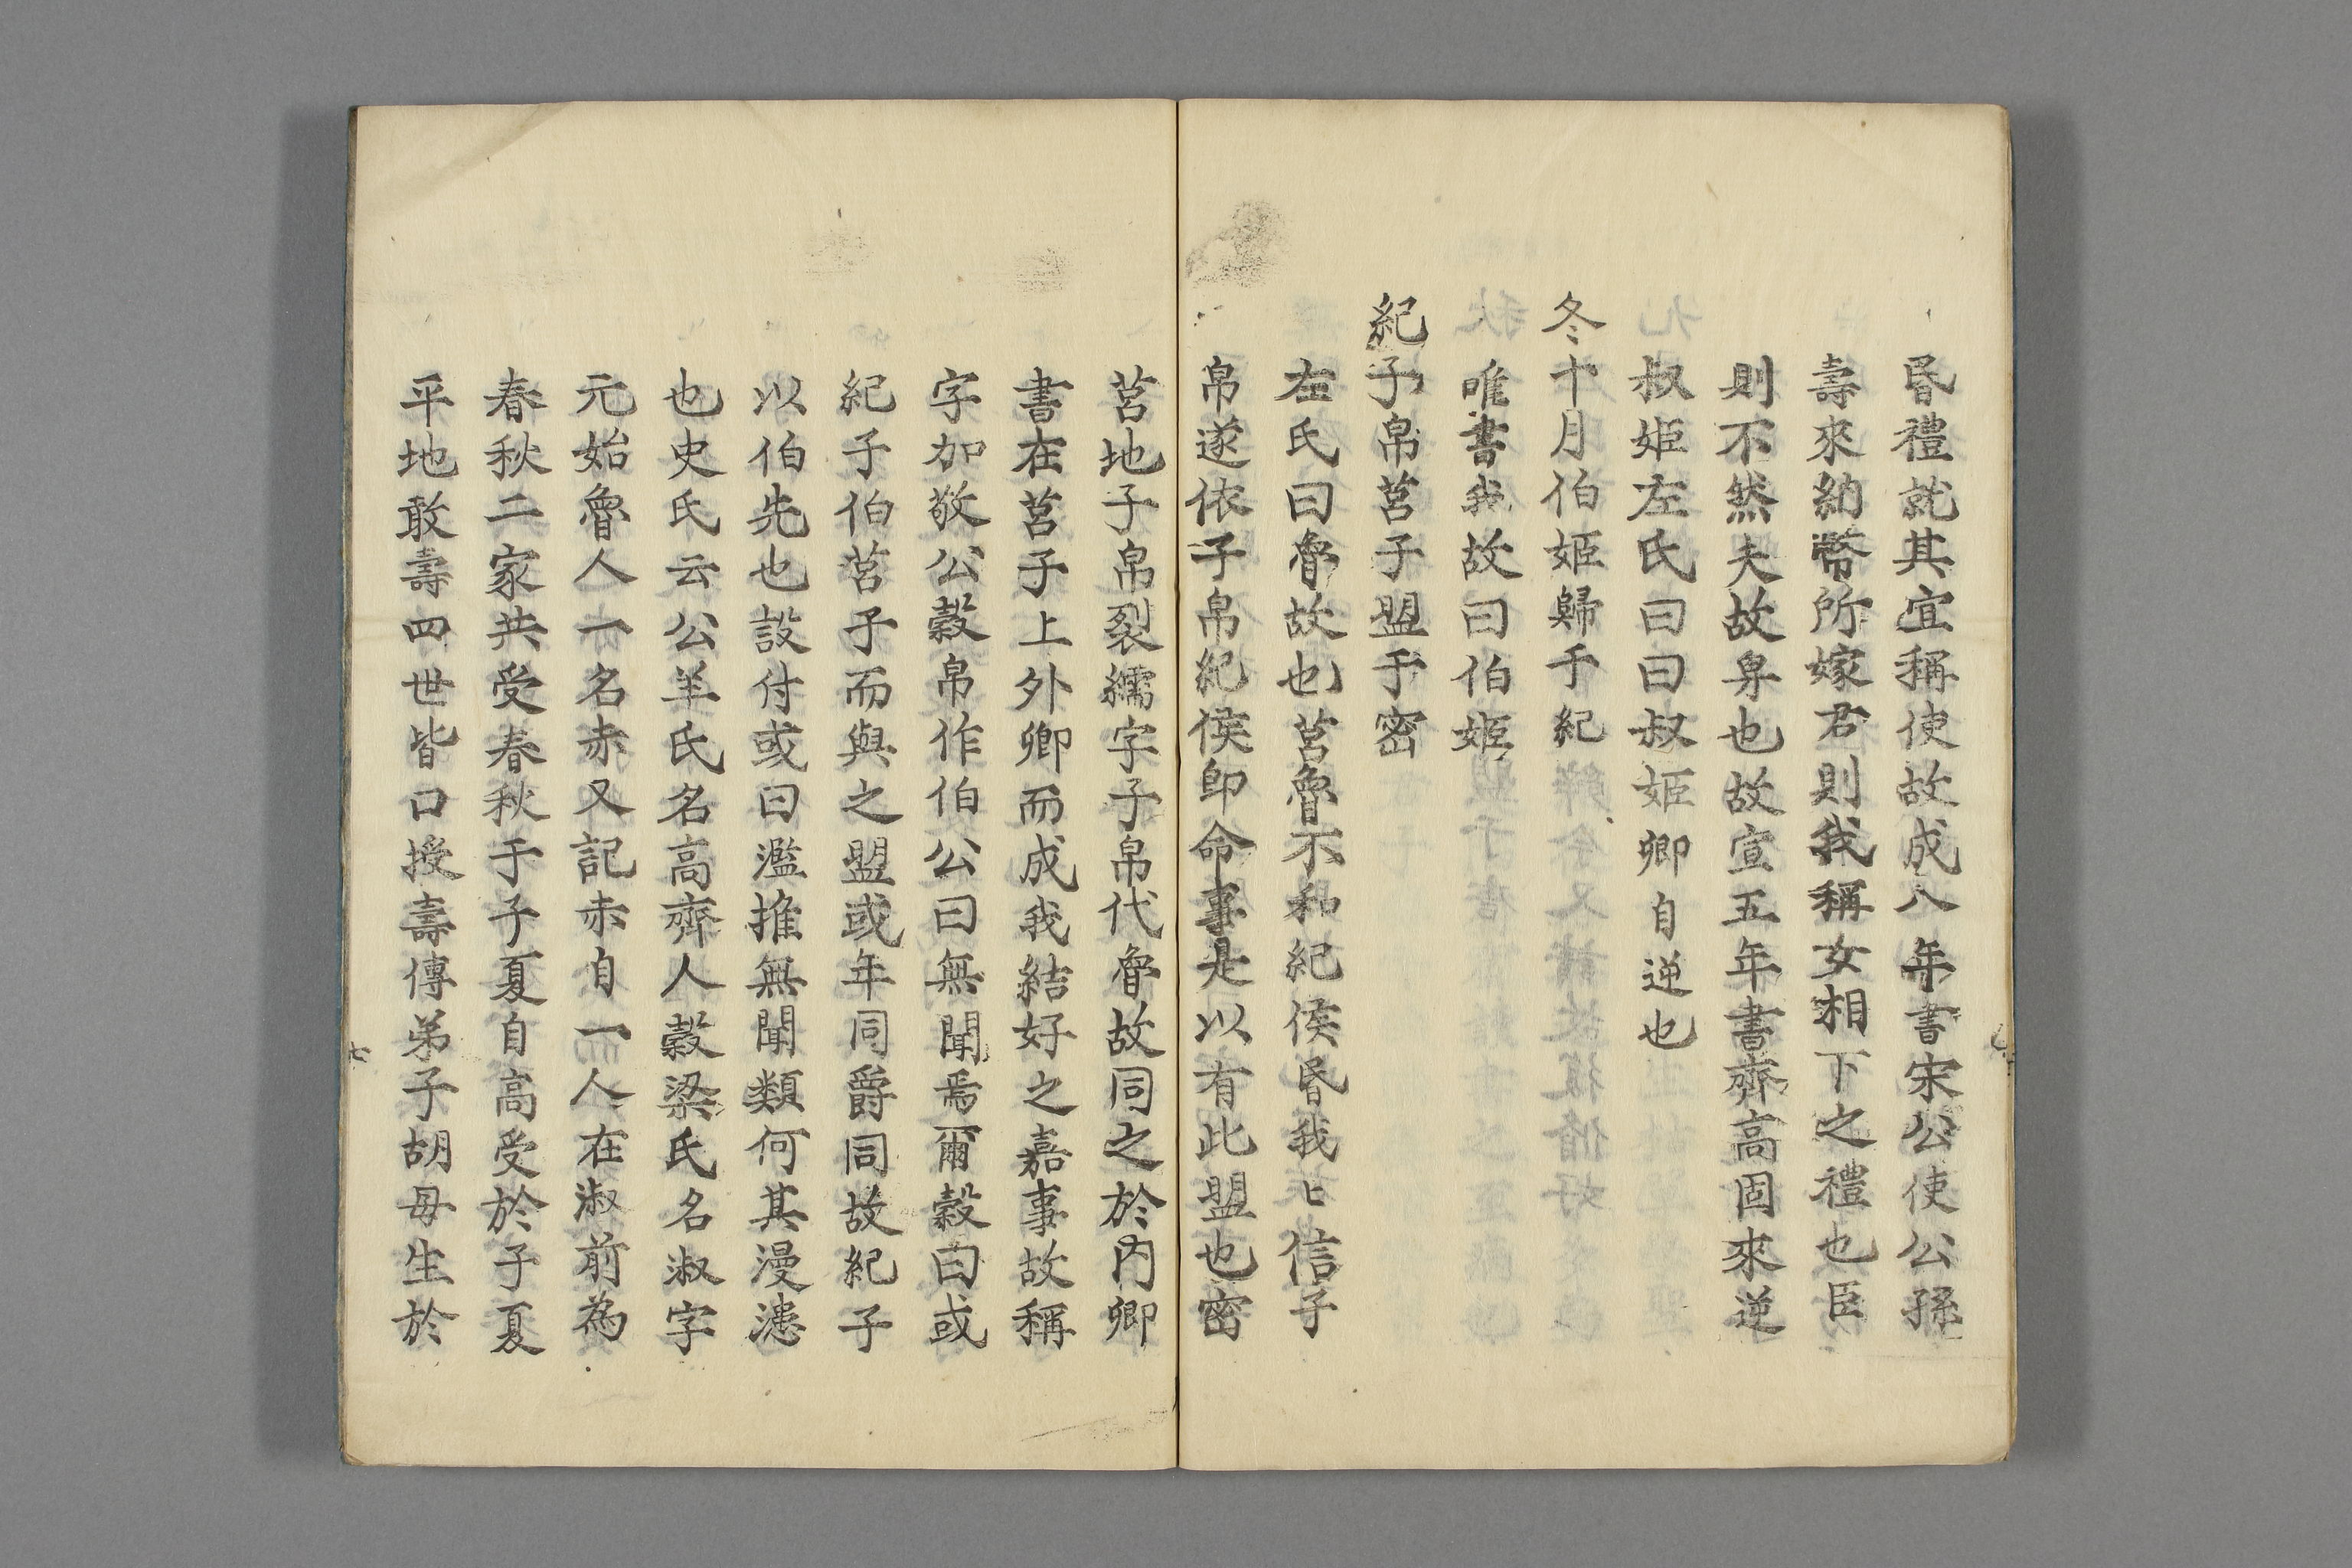 昏禮就其宜稱使故成八年書宋公使公孫
壽來納幣所嫁君則我稱女相下之禮也臣
則不然夫故卑也故宣五年書齊高固來逆
叔姬左氏曰曰叔姬卿自逆也
冬十月伯姬歸于紀
唯書我故曰伯姬
紀子帛莒子盟于密
左氏曰魯故也莒魯不和紀侯昏我〻信子
帛遂依子帛紀侯卽命事是以有此盟也密
莒地子帛裂繻字子帛代魯故同之於內卿
書在莒子上外卿而成我結好之嘉事故稱
字加敬公穀帛作伯公曰無聞焉爾穀曰或
紀子伯莒子而與之盟或年同爵同故紀子
以伯先也設付或曰濫推無聞類何其漫漶
也史氏云公羊氏名高齊人穀梁氏名淑字
元始魯人一名赤又記赤自一人在淑前為
春秋二家共受春秋于子夏自高受於子夏
平地敢壽四世皆口授壽傳弟子胡毋生於